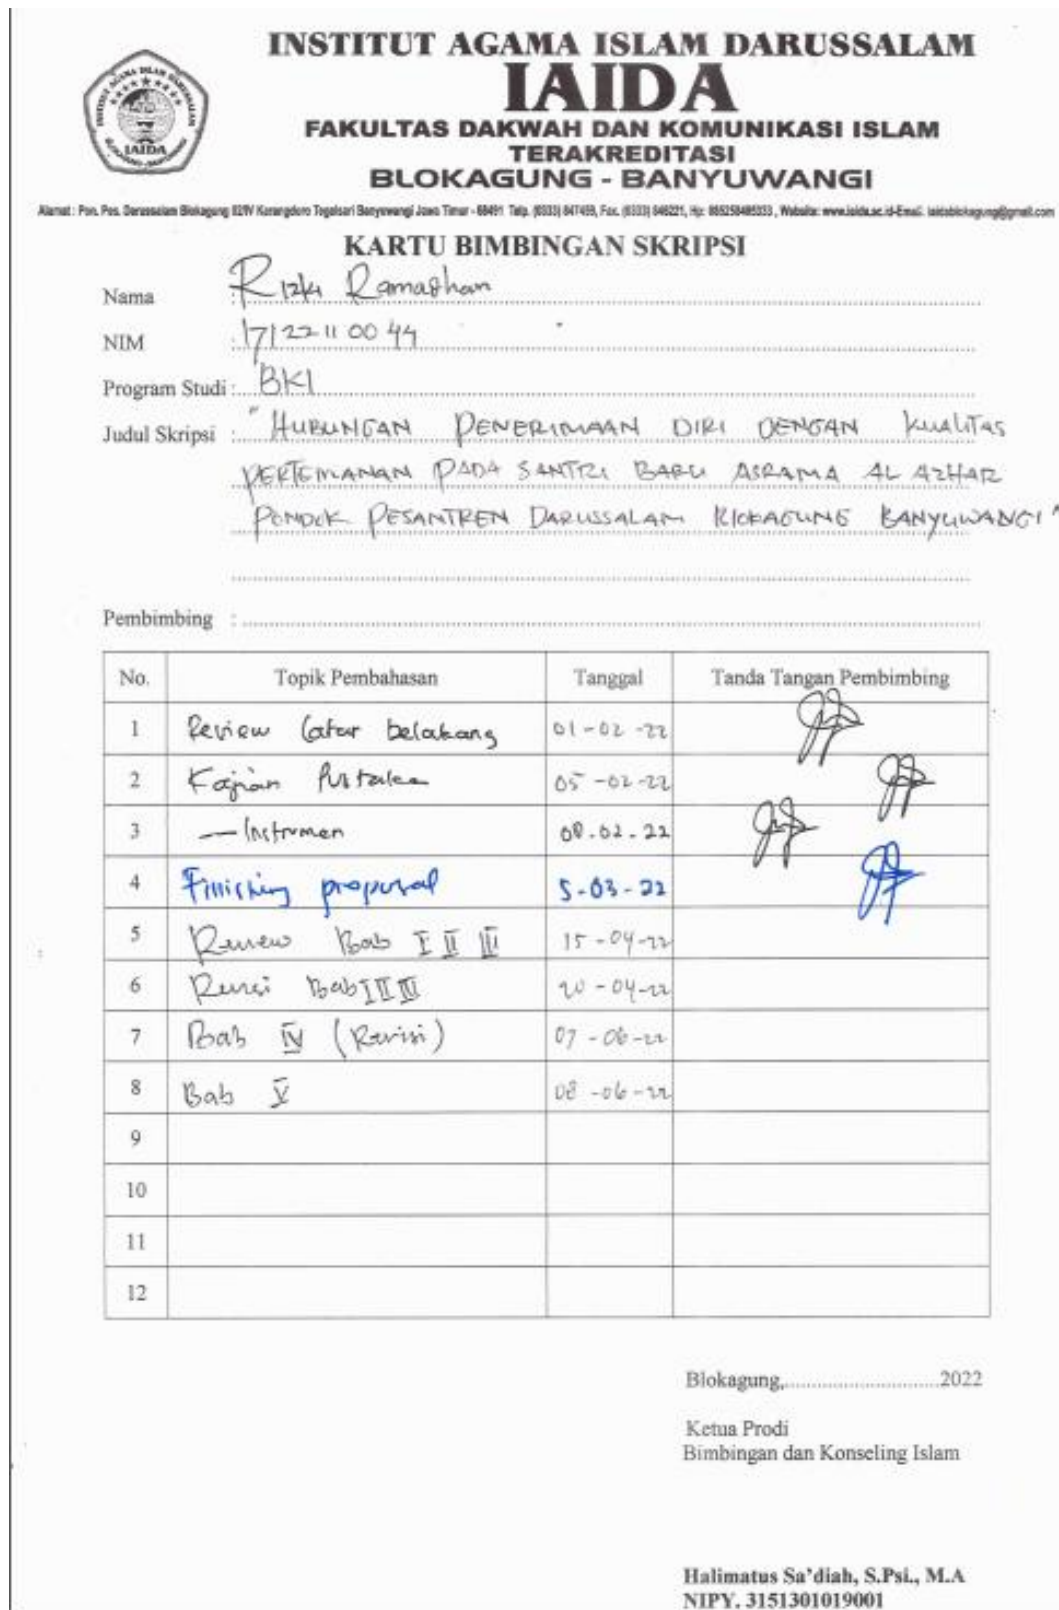 INSTITUT AGAMA ISLAM DARUSSALAM
IAIDA
FAKULTAS DAKWAH DAN KOMUNIKASI ISLAM
TERAKREDITASI
BLOKAGUNG - BANYUWANGI
Alamat : Pon. Pes. Darussalam Blokagung 02/IV Karangdoro Tegalsari Banyuwangi Jawa Timur - 68491 Telp. (0333) 847459, Fax. (0333) 846221, Hp: 085258405333 , Website: www.iaida.ac.id-Email: iaidablokagung@gmail.com
KARTU BIMBINGAN SKRIPSI
Nama : Rizki Ramadhan
NIM : 17122110044
Program Studi : BKI
Judul Skripsi : "HUBUNGAN PENERIMAAN DIRI DENGAN KUALITAS
PERTEMANAN PADA SANTRI BARU ASRAMA AL AZHAR
PONDOK PESANTREN DARUSSALAM BLOKAGUNG BANYUWANGI"
Pembimbing :
No. Topik Pembahasan Tanggal Tanda Tangan Pembimbing
1 Review latar belakang 01-02-22
2 Kajian Pustaka 05-02-22
3 — Instrumen 08.02.22
4 Finishing proposal 5-03-22
5 Review Bab I II III 15-04-22
6 Revisi Bab I II III 20-04-22
7 Bab IV (Revisi) 07-06-22
8 Bab V 08-06-22
9
10
11
12
Blokagung,............................2022
Ketua Prodi
Bimbingan dan Konseling Islam
Halimatus Sa'diah, S.Psi., M.A
NIPY. 3151301019001